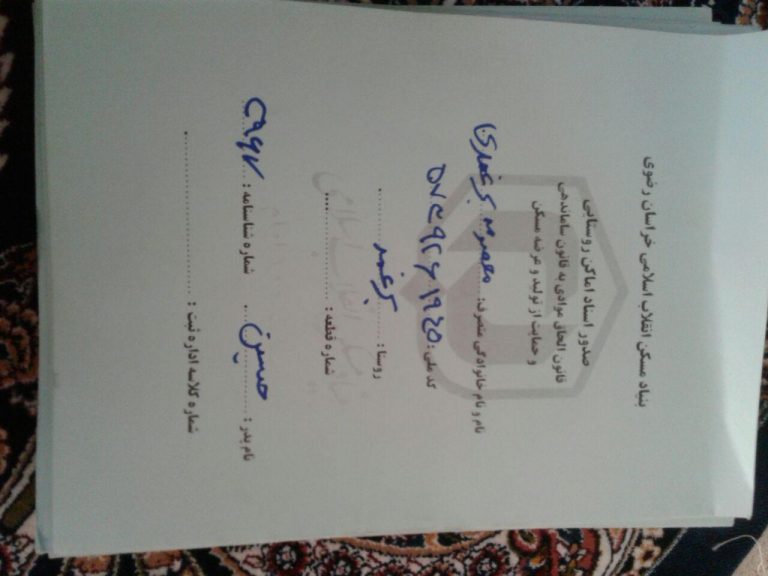 بنیاد مسکن انقلاب اسلامی خراسان رضوی
صدور اسناد اماکن روستایی
قانون الحاق موادی به قانون ساماندهی
و حمایت از تولید و عرضه مسکن
نام و نام خانوادگی متصرف: معصومه برغمدی
کد ملی:
روستا: برغمد
شماره قطعه:
نام پدر: حسین شماره شناسنامه:
شماره کلاسه اداره ثبت: